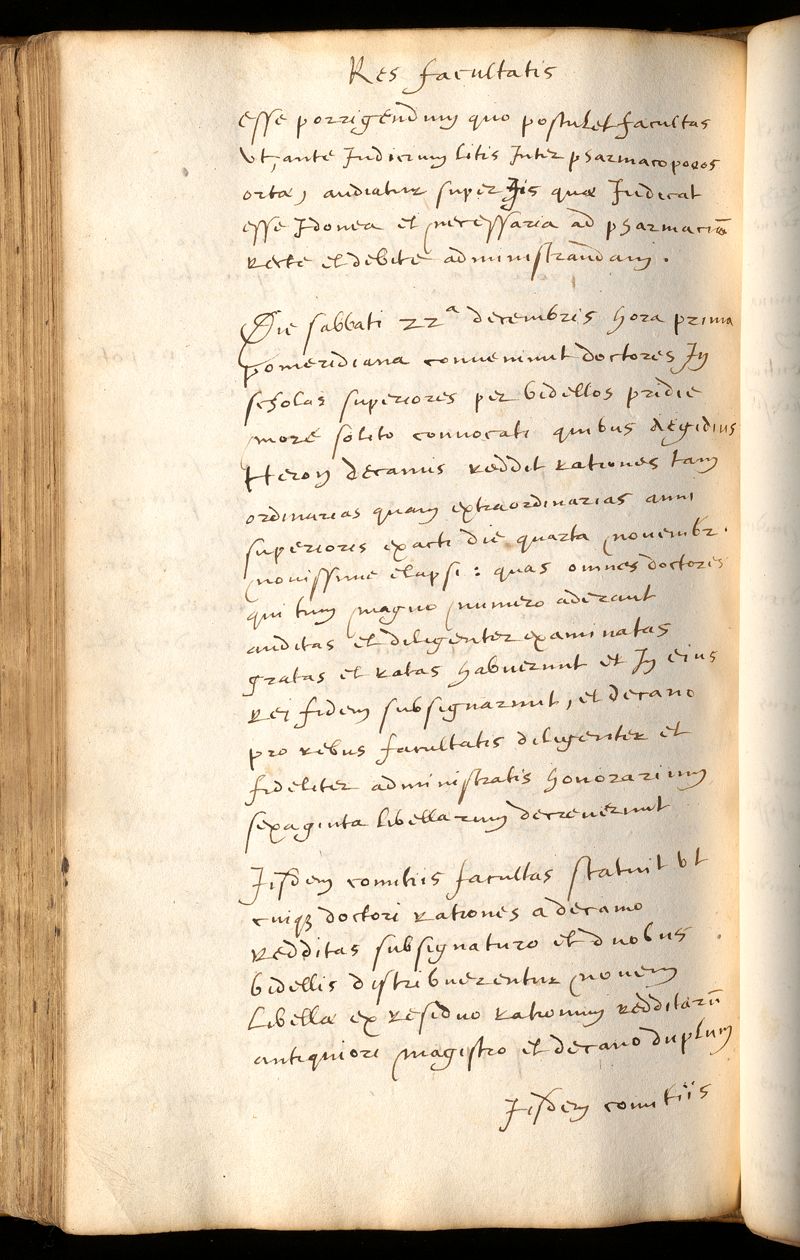 Res facultatis
esse porrigendum quo postulet facultas
Vt, ante Judicium litis Inter pharmacopoeos
ortae, audiatur super Jis quae Judicat
esse Idonea et necessaria ad pharmaciã
recte et debite administrandam.
Die sabbati 22ª decembris hora prima
pomeridiana conuenirunt doctores In
scholas superiores per bidellos pridie
more solito conuocati quibus Aegidius
Heron decanus reddit rationes tam
ordinarias quam extraordinarias anni
superioris exacti die quarta nouembr.
nouissime elapsi : quas omnes doctores
qui tum magno numero aderant
auditas et diligenter examinatas
gratas et ratas habuerunt et In eius
rei fidem subsignarunt, et decano
pro rebus facultatis diligenter et
fideliter administratis honorarium
sexaginta libellarum decreuerunt
Jisdem comitiis facultas statuit Vt
cuiq; doctori rationes a decano
redditas subsignaturo et duobus
bidellis distribuerentur nouem
libellae ex residuo rationum redditarũ
antiquiori magistro et decano duplum
Jisdem comitiis